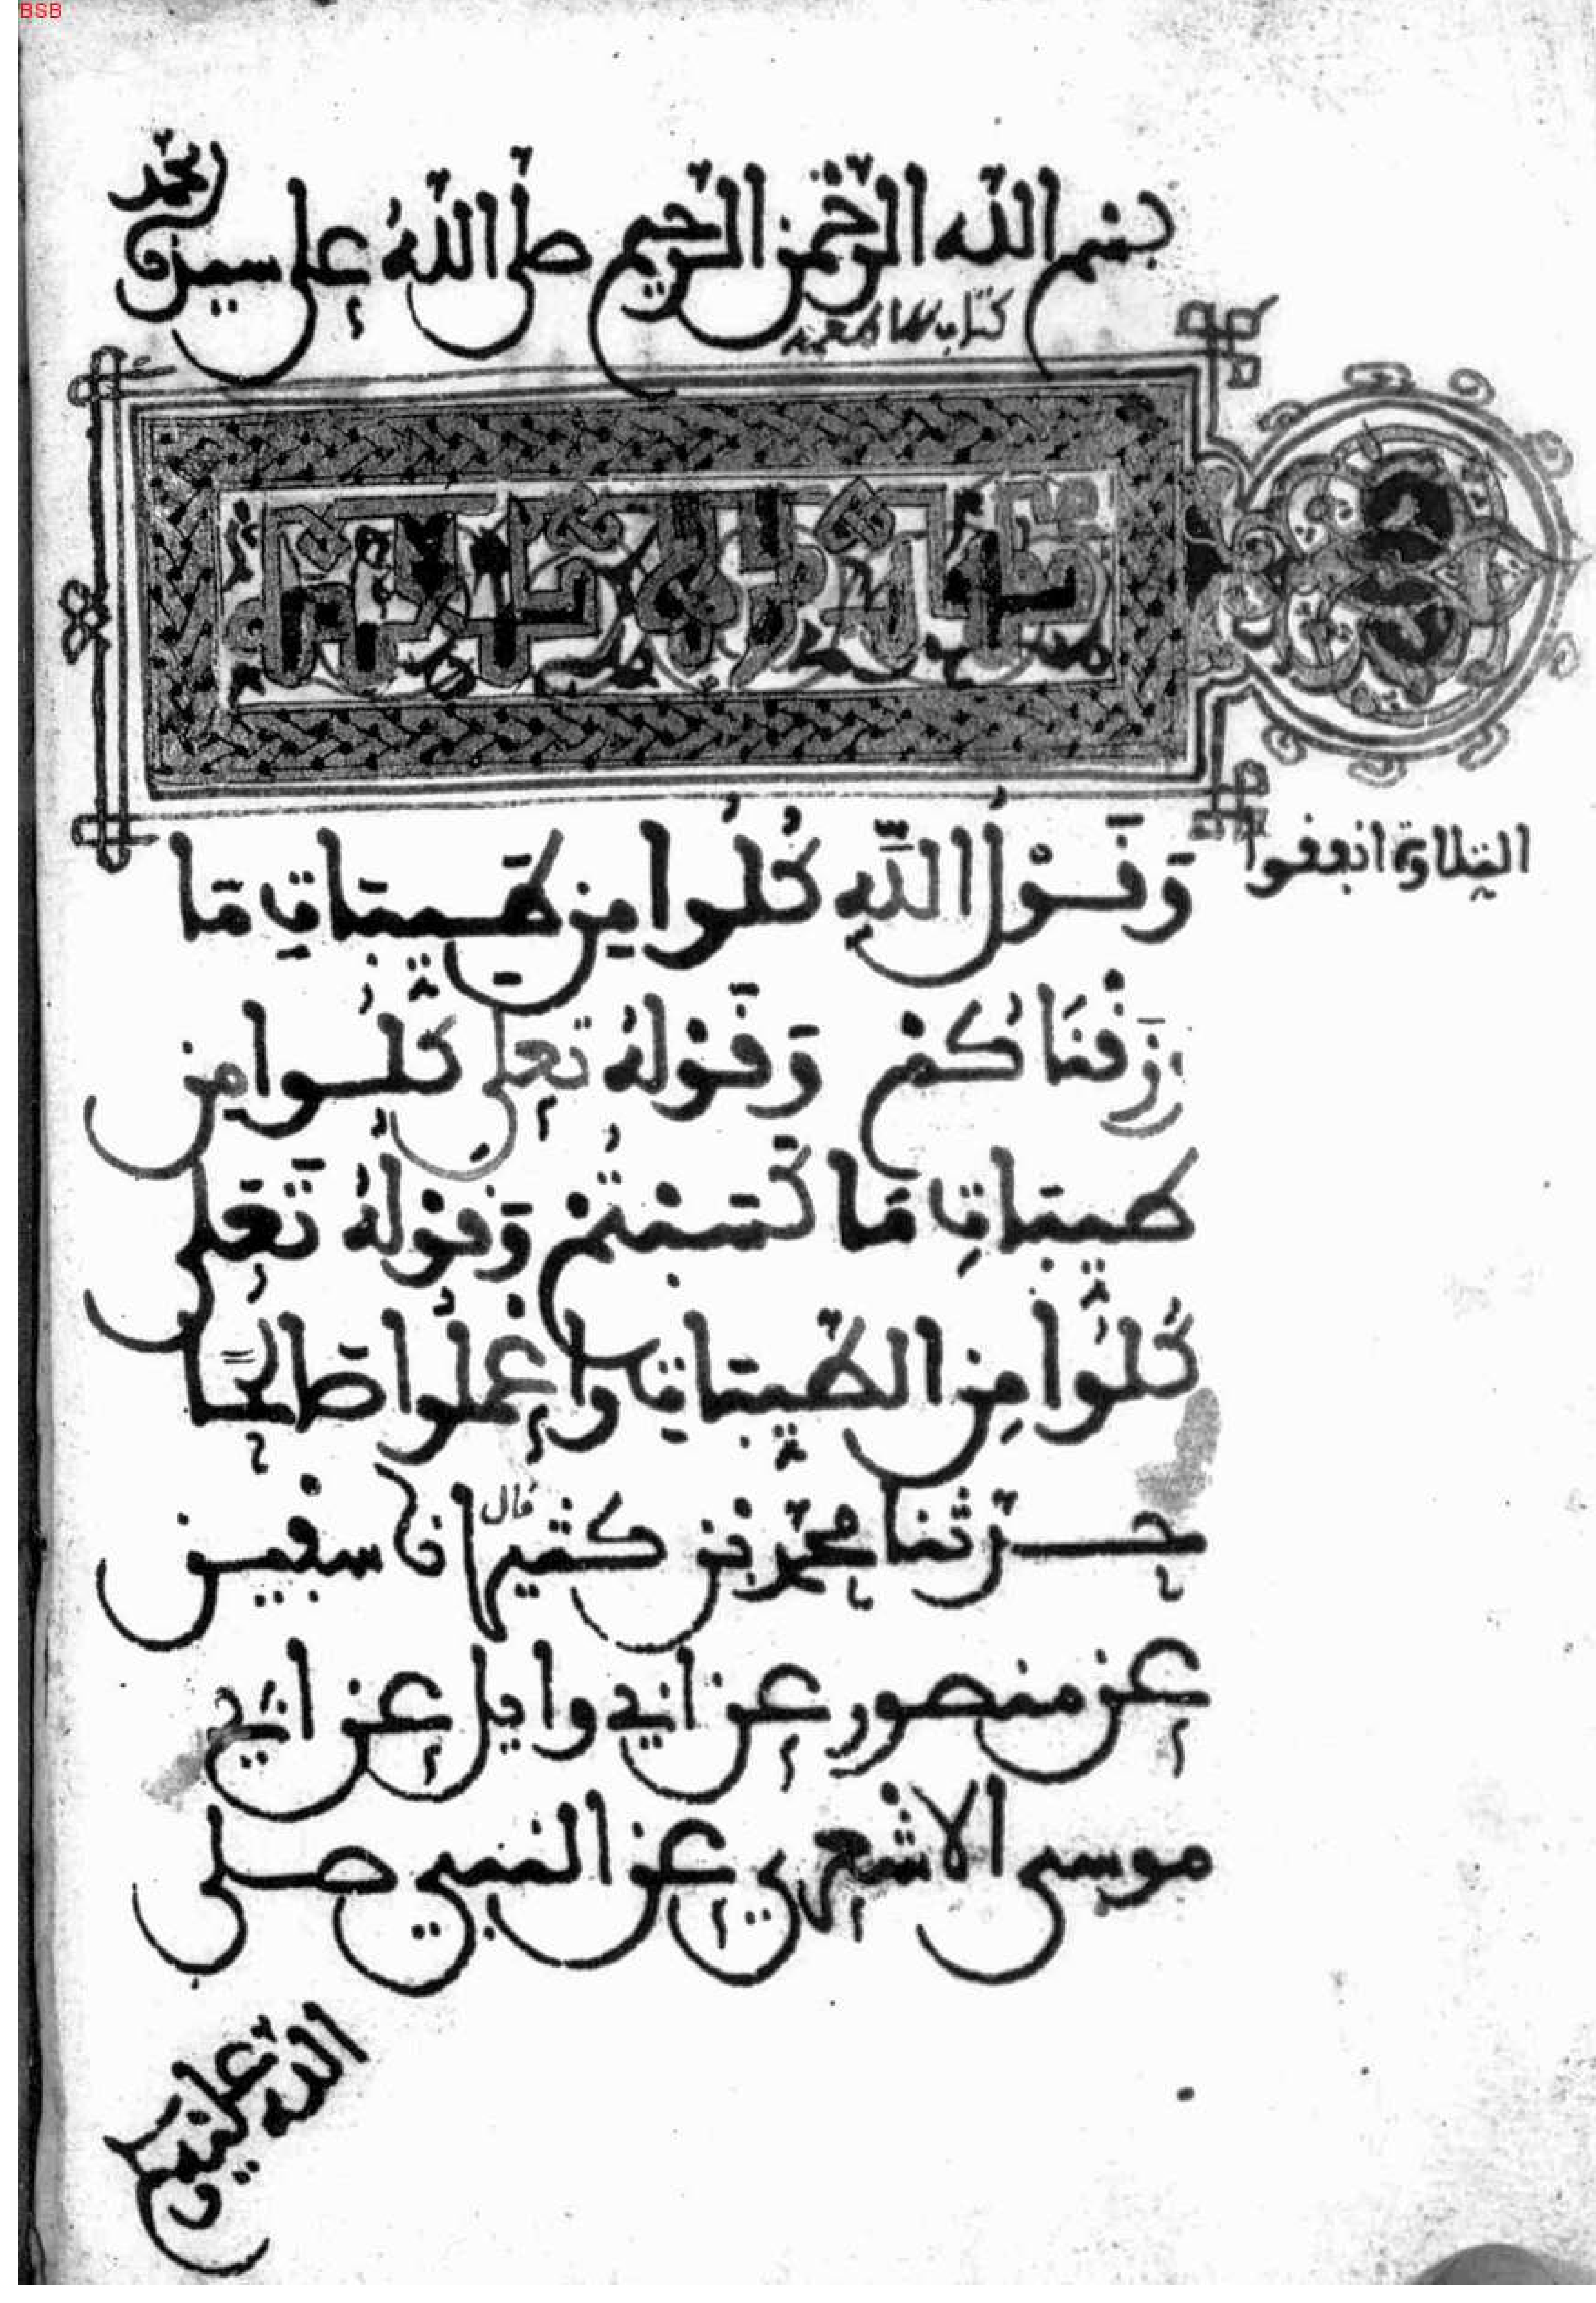 BSB
بسم الله الرحمن الرحيم صلى الله على سيدنا محمد
كتاب الاطعمة
وَقَوْلُ اللَّهِ كُلُوا مِن طَيِّبَاتِ مَا
التلاوة انفقوا
رَزَقْنَاكُمْ وَقَوْلُهُ تَعَلَى كُلُوا مِن
طَيِّبَاتِ مَا كَسَبْتُمْ وَقَوْلُهُ تَعَلَى
كُلُوا مِنَ الطَّيِّبَاتِ وَاعْمَلُوا صَالِحًا
حدثنا محمد بن كثير قال انا سفين
عن منصور عن ابي وايل عن ابي
موسى الاشعري عن النبي صلى
الله عليه